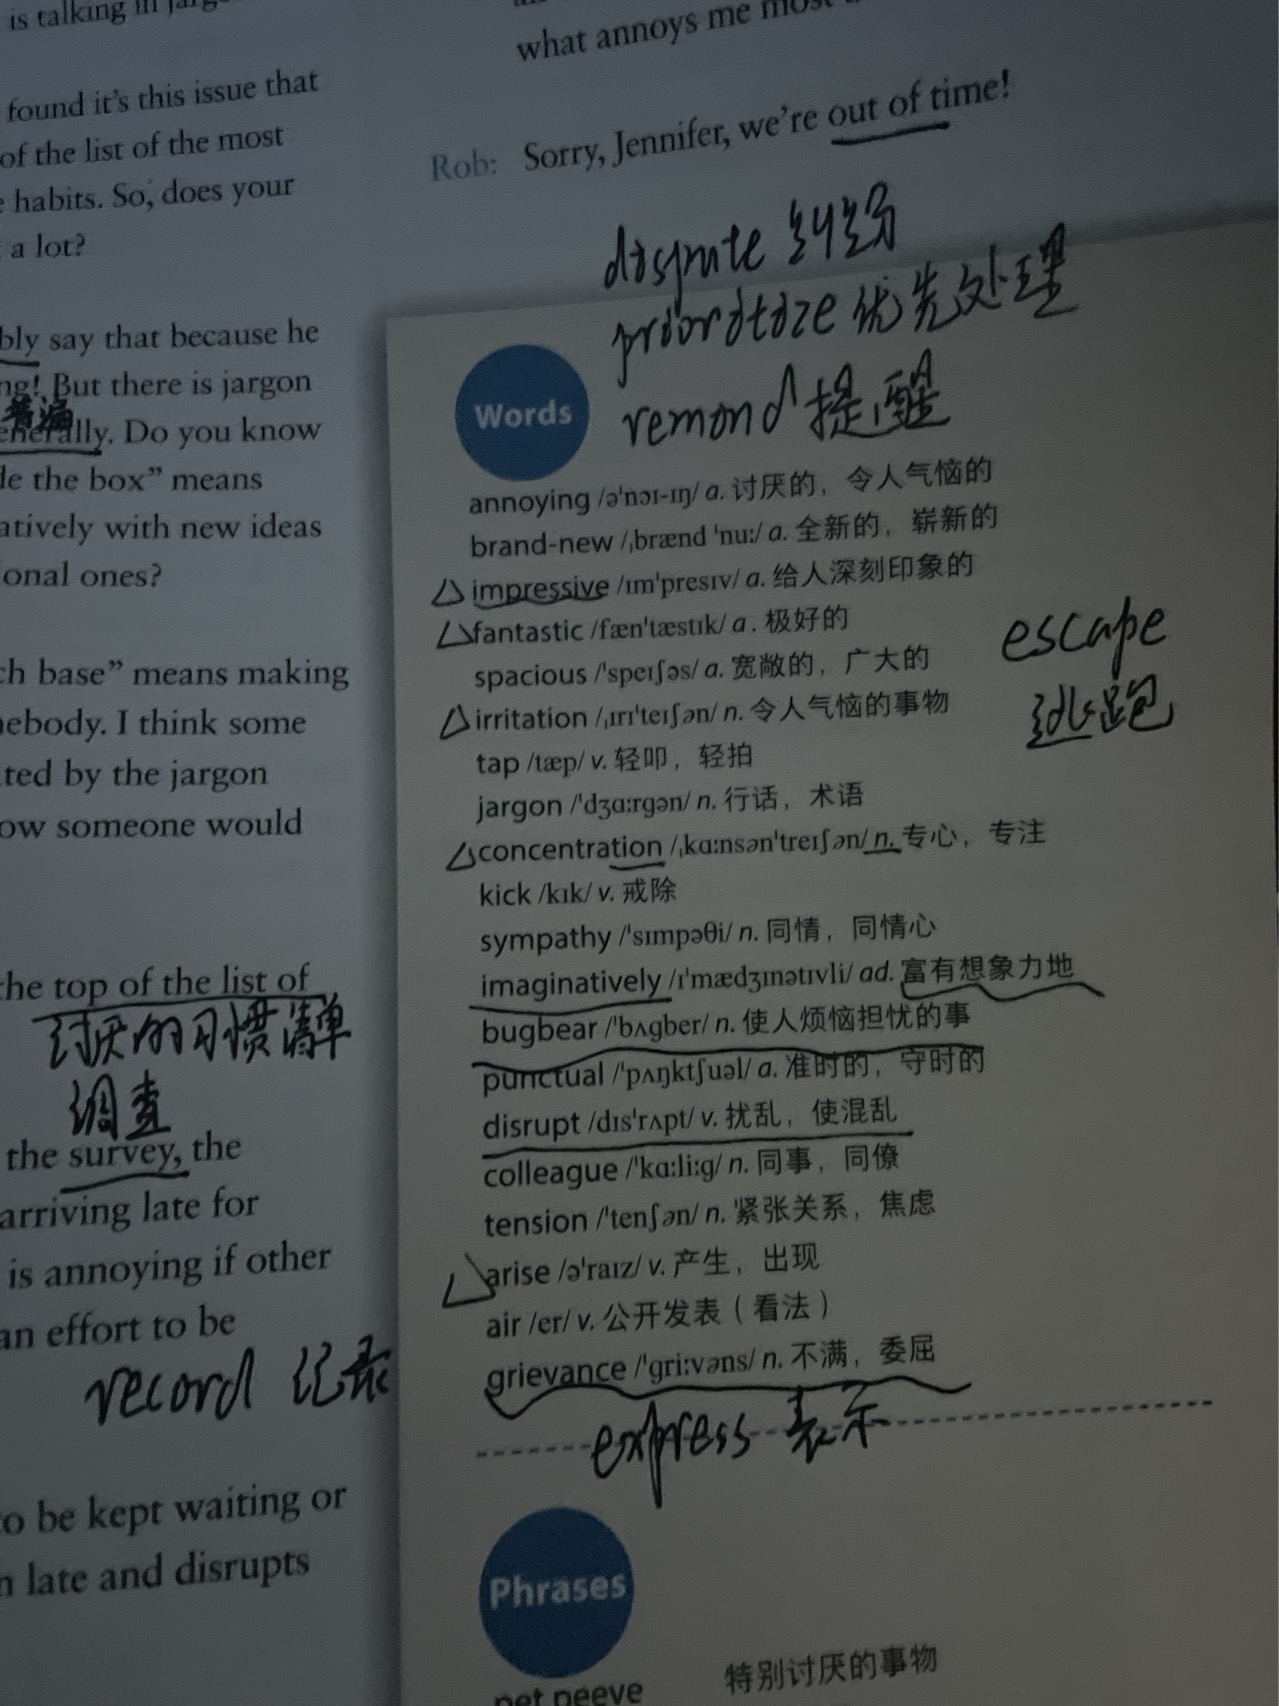 is talking in
found it's this issue that
of the list of the most
habits. So, does your
a lot?
bly say that because he
ng! But there is jargon
普遍
enerally. Do you know
de the box” means
atively with new ideas
ional ones?
ch base” means making
nebody. I think some
ted by the jargon
ow someone would
the top of the list of
讨厌的习惯清单
调查
the survey, the
arriving late for
is annoying if other
an effort to be
record 记录
to be kept waiting or
n late and disrupts
what annoys me most
Rob: Sorry, Jennifer, we're out of time!
dispute 纠纷
prioritize 优先处理
remind 提醒
Words
annoying /ə'nɔɪ-ɪŋ/ a. 讨厌的，令人气恼的
brand-new /ˌbrænd 'nu:/ a. 全新的，崭新的
△ impressive /ɪm'presɪv/ a. 给人深刻印象的
△ fantastic /fæn'tæstɪk/ a. 极好的
spacious /'speɪʃəs/ a. 宽敞的，广大的
△ irritation /ˌɪrɪ'teɪʃən/ n. 令人气恼的事物
tap /tæp/ v. 轻叩，轻拍
jargon /'dʒɑ:rgən/ n. 行话，术语
△ concentration /ˌkɑ:nsən'treɪʃən/ n. 专心，专注
kick /kɪk/ v. 戒除
sympathy /'sɪmpəθi/ n. 同情，同情心
imaginatively /ɪ'mædʒɪnətɪvli/ ad. 富有想象力地
bugbear /'bʌgber/ n. 使人烦恼担忧的事
punctual /'pʌŋktʃuəl/ a. 准时的，守时的
disrupt /dɪs'rʌpt/ v. 扰乱，使混乱
colleague /'kɑ:li:g/ n. 同事，同僚
tension /'tenʃən/ n. 紧张关系，焦虑
△ arise /ə'raɪz/ v. 产生，出现
air /er/ v. 公开发表（看法）
grievance /'gri:vəns/ n. 不满，委屈
express 表示
escape
逃跑
Phrases
pet peeve 特别讨厌的事物